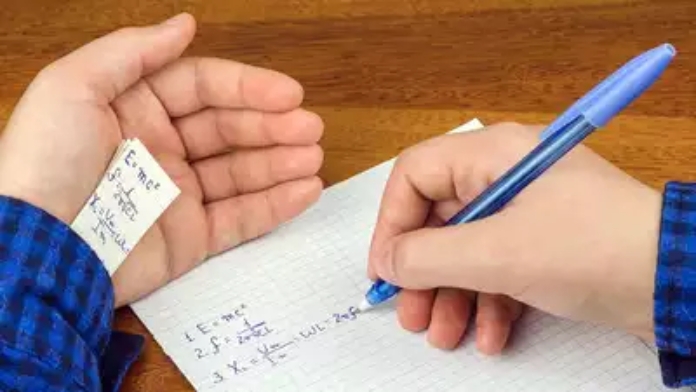 E=mc²
f=1/2π√CL
X_L=Um/Im=ωL
1. E=mc²
2. f=1/2π√CL
3. X_L=Um/Im=ωL=2πf